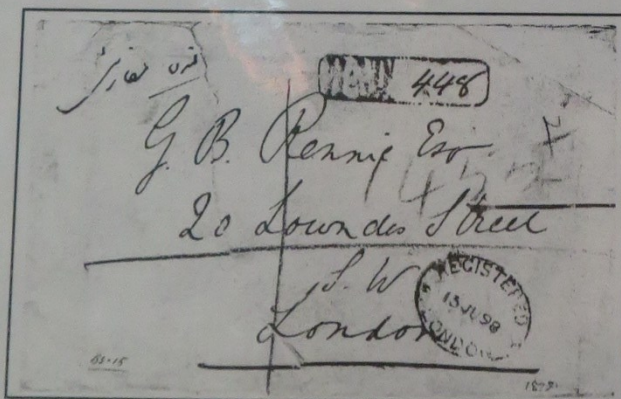 448
G. B. Rennie Esq
20 Lowndes Street
S. W
London
REGISTERED
13 JU 98
LONDON